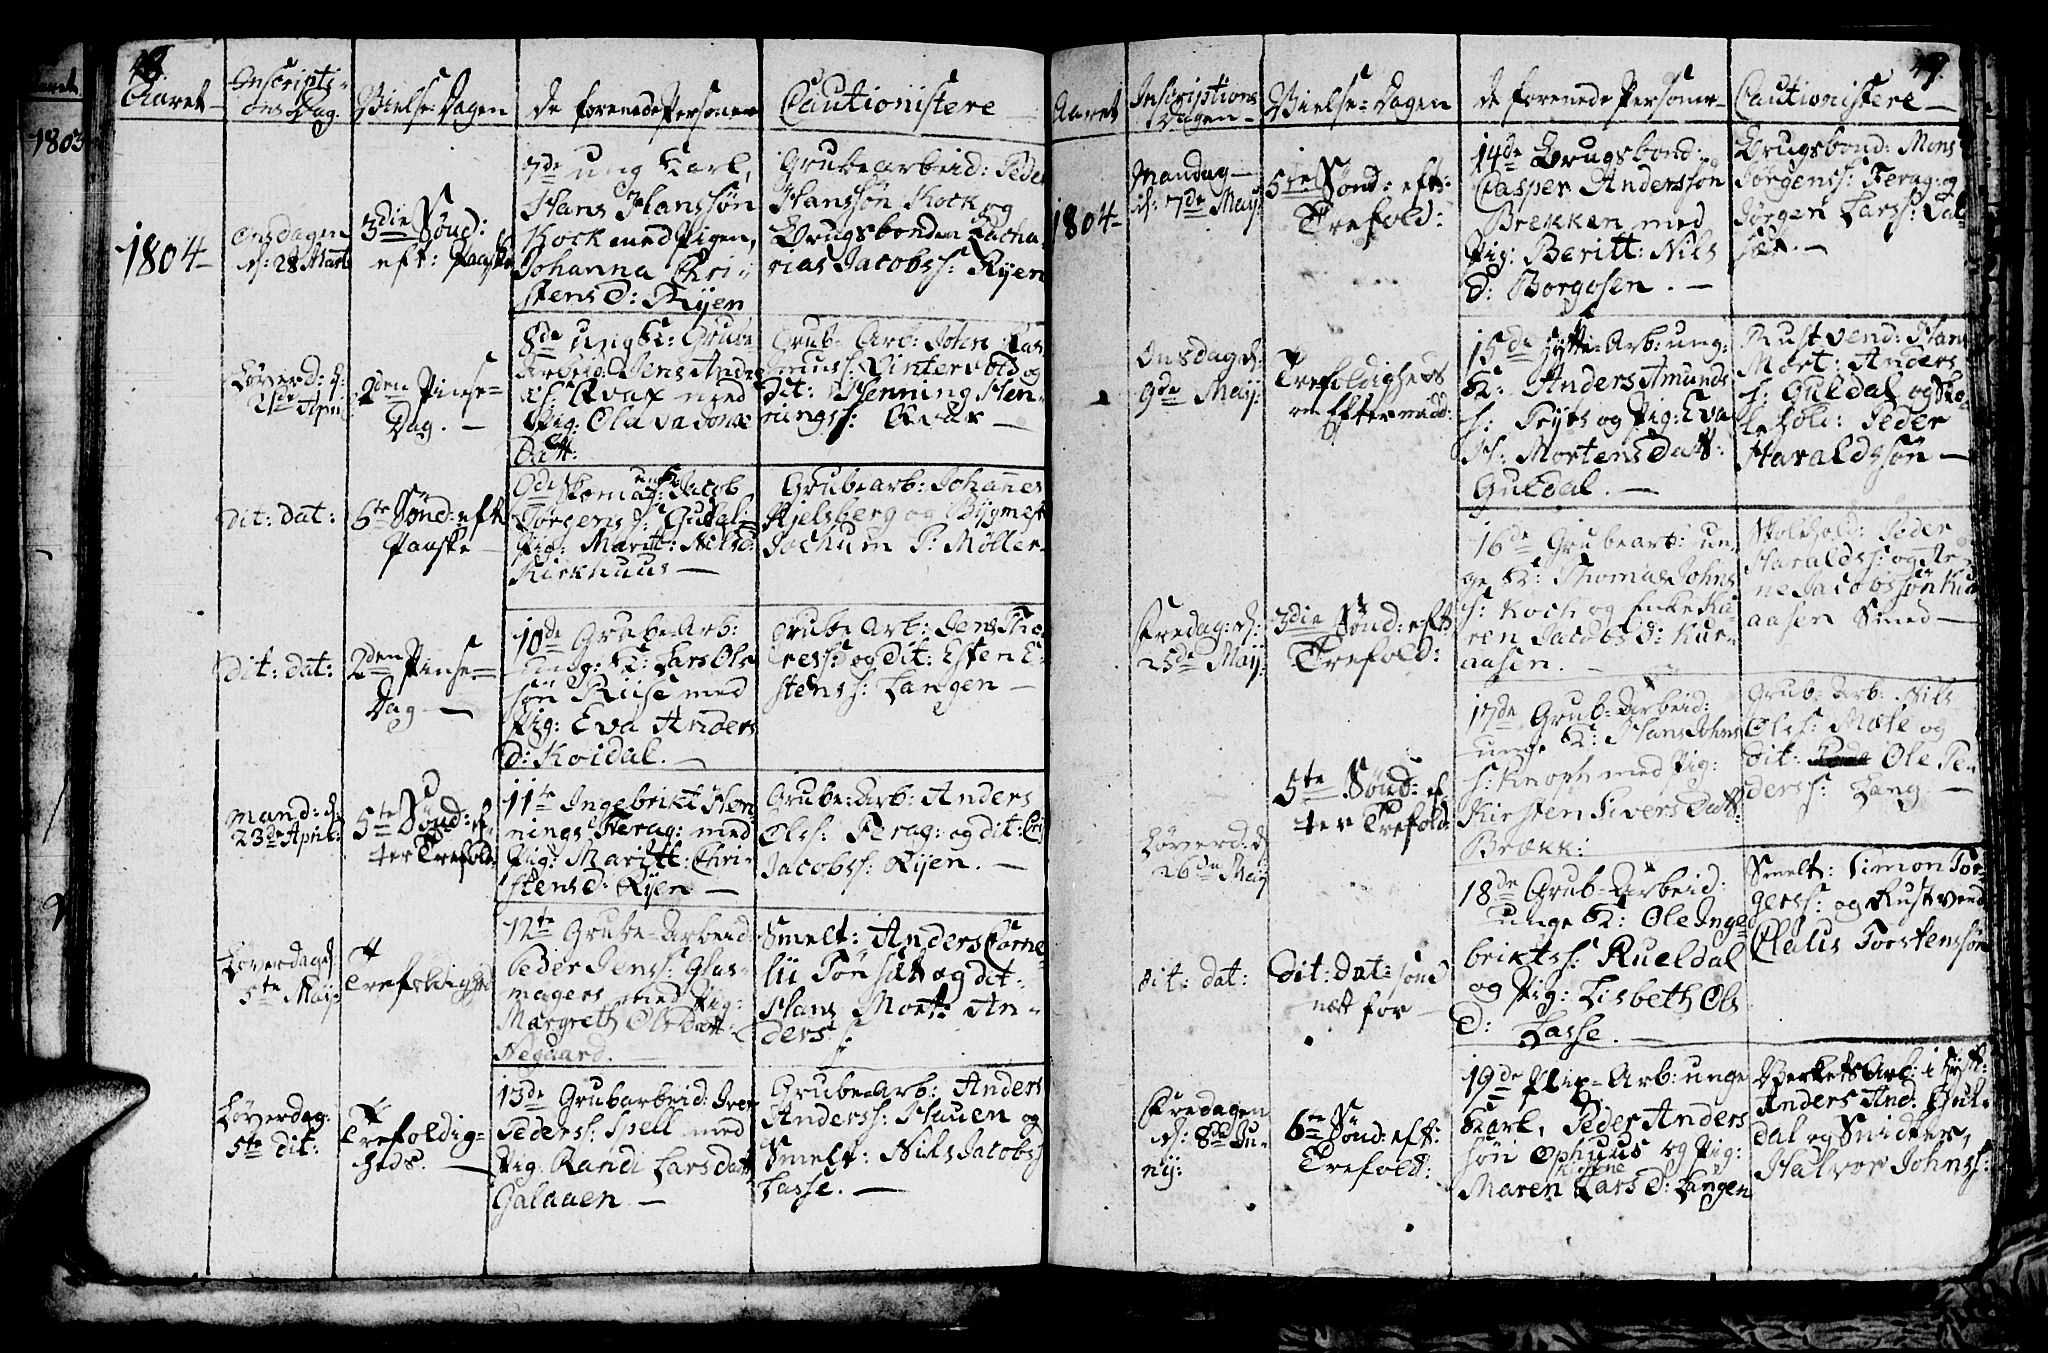 48.
Aaret
Inscripti-
ons Dag.
Vielse Dagen
de forenede Personer
Cautionistere
1803
1804
Onsdagen
d: 28 Marti
3die Sønd:
eft: Paaske
7de ung Karl,
Hans Hanssøn
Kock med Pigen,
Johanna Chri-
stensd: Ryen
Grubearbeid: Peder
Hanssøn Kock og
Brugsbonden Zacha-
rias Jacobss: Ryen
Løverd: d:
21de April
2den Pinse-
Dag. —
8de ung K: Grube
Arbeid: Jens Andr
med
Pig: Olava Jonæ
Datt:
Grub-Arb: John Ras
muss: Vintervold og
dit: Henning Hen-
nings: Kvar —
Dit: dat:
6te Sønd: eft
Paaske —
9de Skomag: Jacob
ung K:
Jørgens: Gudal:
Pig: Maritt: Nilsd:
Kirkhuus —
Grubearb: Johannes
Kjelsberg og Bygmest
Jochum P: Møller.
Dit: dat:
2den Pinse-
Dag —
10de Grube Arb:
ung: K: Lars Ols
søn Riise med
Pig: Eva Anders
D: Koidal. —
Grube Arb: Jens Tho-
ress: og dit: Esten E-
stens: Langen —
Mand: d:
23de April:
5te Sønd: ef-
ter Trefold:
11te Ingebrikt Hen
nings Ferag: med
Pig: Maritt: Chri-
stensd: Ryen —
Grube-Arb: Anders
Olss: Ferag: og dit: Cri
Jacobss: Ryen. —
Løverdag d
5te Maij:
Trefoldigh
12te Grube-Arbeid:
Peder Jenss: Glas-
magers med Pig:
Margreth Olsdatt:
Negaard. —
Smelt: Anders Corne-
lii Tønsæt og dit:
Hans Mort: An-
ders:
Løverdag:
5te dit:
Trefoldig-
heds. —
13de Grubarbeid: Iver
Peders: Spell med
Pig: Randi Larsdatt
Galaaen —
Grube Arb: Anders
Anderss: Hauen og
Smelt: Nils Jacobss
Lasse. —
49.
Aaret
Inscriptions
Dagen —
Vielse-Dagen
de forenede Personer
Cautionistere —
1804
Mandag —
d: 7de Maij:
5te Sønd: eft:
Trefold:
14de Brugsbond:
Casper Anderssøn
Brekken med
Pig: Beritt: Nils
D: Borgosen. —
Brugsbond: Mons
Jørgenss: Ferag: og
Jørgen Larss: Dal-
sæt. —
Onsdag d:
9de Maij:
Trefoldigheds
Eftermidd:
15de Hytte-Arb: ung:
K: Anders Amunds
s: Tryts og Pig: Eva
M: Mortens Datt:
Guldal. —
Rustvend: Hans
Mort: Anders
s: Guldal og Sko-
lehold: Peder
Haraldssøn —
Fredag: d:
25de Maij:
3die Sønd: eft:
Trefold:
16de Grubearb: un-
ge K: Thomas Johns
s: Koch og Enke Ka-
ren Jacobsd: Kur-
aasen. —
Skolehold: Peder
Haraldss: og Ar-
ne Jacobssøn Kur
aasen Smed —
Løverd: d
26de Maij
5te Sønd: ef
ter Trefold:
17de Grub-Arbeid:
unge K: Hans Johns
s: Knoph med Pig:
Kirsten Sivers Datt:
Brækk:
Grub-Arb: Nils
Olss: Mæle og
dit: Ole Pe-
derss: Lang —
dit: dat:
Dit: Dat: Sønd
næst før —
18de Grub-Arbeid:
unge K: Ole Inge
briktss: Rueldal
og Pig: Lisbeth Ols
D: Lasse. —
Smelt: Simon Tor-
gerss: og Rustvend
Claus Torstenssøn
Fredagen
d: 8de Ju-
nij:
6te Sønd: eft:
Trefold:
19de Flip-Arb: unge
Karl, Peder Anders
søn Ophuus og Pig:
Kirstine
Maren Larsd: Langen
Verkets Arb: i Hytt:
Anders And: Guul-
dal og Snidker,
Halvor Johnss: